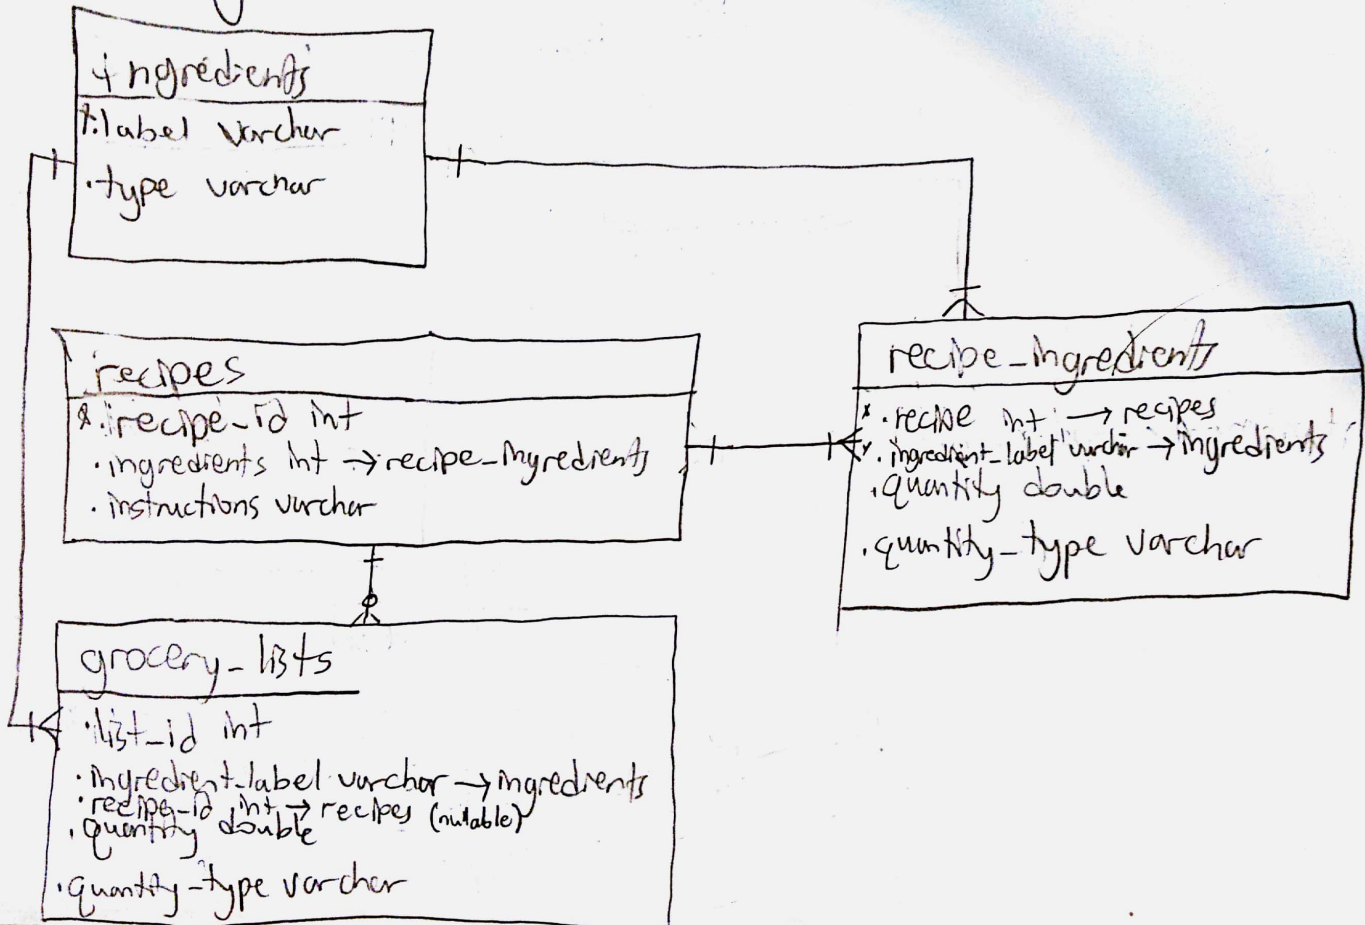 ingredients
*.label varchar
.type varchar
recipes
*.recipe_id int
.ingredients int → recipe_ingredients
.instructions varchar
recipe_ingredients
*.recipe int → recipes
*.ingredient_label varchar → ingredients
.quantity double
.quantity_type varchar
grocery_lists
.list_id int
.ingredient_label varchar → ingredients
.recipe_id int → recipes (nullable)
.quantity double
.quantity_type varchar